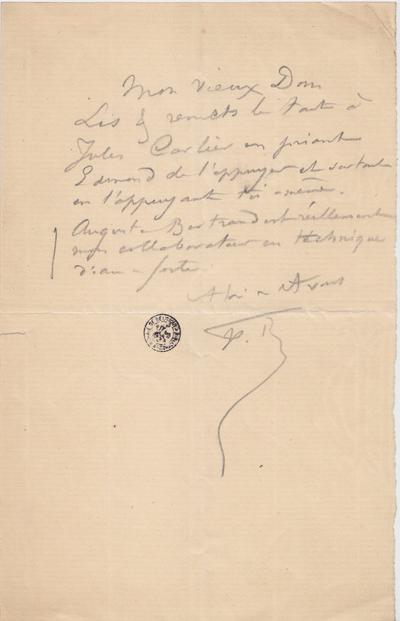 Mon vieux Dom
Lis & remets le tout à
Jules Carlier en priant
Edmond de l'appuyer et surtout
en l'appuyant toi même.
Auguste Bertrand est réellement
mon collaborateur en technique
d'eau-forte
A toi